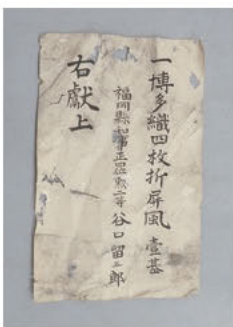 一博多織四枚折屏風 壹基
福岡縣知事正四位勲二等 谷口留五郎
右獻上